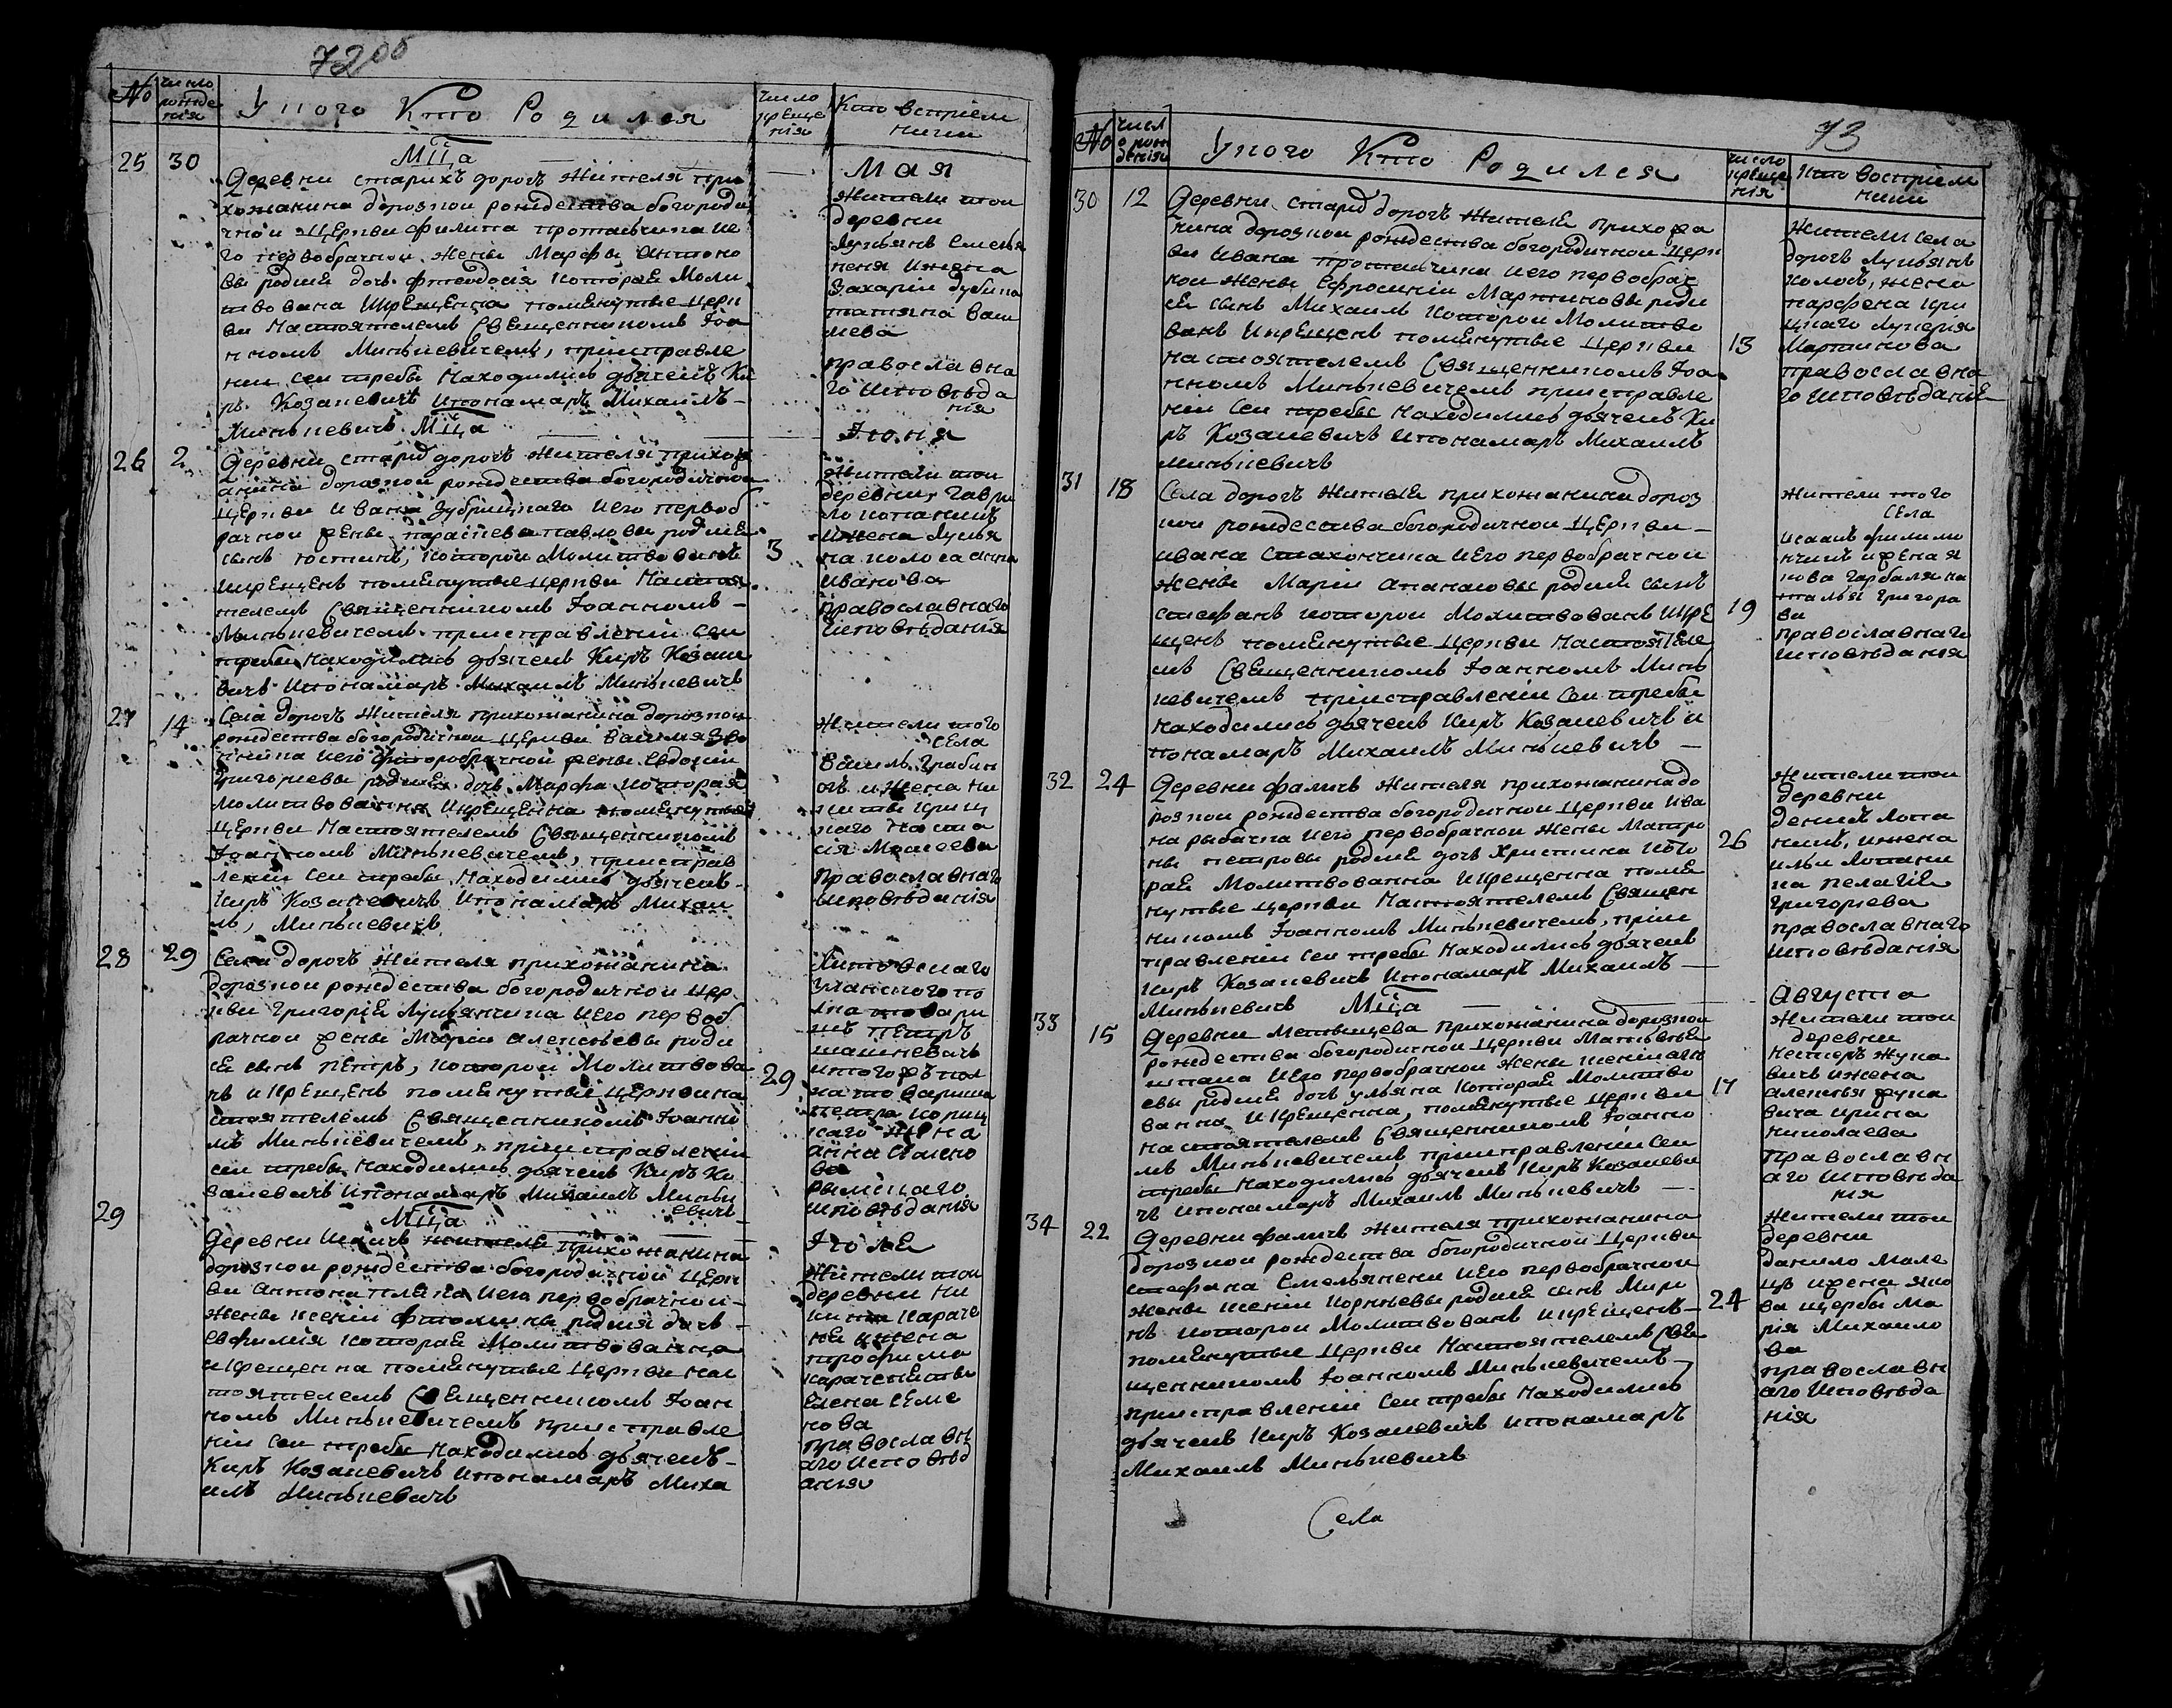 72об
№
число рожде нія
У кого Кто Родился
число креще нія
Кто восприем ники
Мца
Мая
25
30
Деревни старихъ дорогъ жителя при
хожанина дорозкои рождества богороди
чнои церкви филипа протасчика и е
го первобрачнои жены Марфы Антоно
вы родися дочь феодосія которая Моли
твована и крещенна помянутые церк
ви Настоятелемъ Священникомъ Іоа
нномъ Минькевичемъ, приисправле
нии сеи требы находились дьячекъ Ки
ръ Козакевичъ и понамаръ Михаилъ
Минькевичъ
жители тои
деревни
Лукьянъ Емелья
неня и жена
Захарии дубика
татяна Васи
лева
православна
го исповѣда
нія
Мца
Іюня
26
2
Деревни старихъ дорогъ жителя прихож
анина дорозкои рождества богородичнои
церкви Ивана Зубрицкаго и его первоб
рачнои жены параскевы павловы родися
сынъ Юстинъ, которои Молитвованъ
и крещенъ помянутые церкви Настоя
телемъ Священникомъ Іоанномъ
Минькевичемъ приисправлении сеи
требы находились дьячекъ Киръ Козаке
вичъ и понамаръ Михаилъ Минькевичъ
3
жители тои
деревни, Гаври
ло
и жена Лукья
на
Иванова
православнаго
исповѣданія
27
14
Села дорогъ жителя прихожанина дорозкои
рождества богородичнои церкви Василия
и его второбрачнои жены Евдокии
Григориевы родися дочь Марфа которая
Молитвованна и крещенна помянутыя
церкви Настоятелемъ Священникомъ
Іоанномъ Минькевичемъ, приисправ
лении сеи требы находились дьячекъ
Киръ Козакевичъ и понамаръ Михаи
лъ, Минькевичъ
жители того
села
Василь
и жена Ни
киты
Наста
сія Моисеева
православнаго
исповѣданія
28
29
Села дорогъ жителя прихожанина
дорозкои рождества богородичнои цер
кви Григорія Лукьянчика и его первоб
рачнои жены Маріи Алексѣевы роди
ся сынъ Петръ, которои Молитвова
нъ и крещенъ помянутые церкви на
стоятелемъ Священникомъ Іоанно
мъ Минькевичемъ, приисправлении
сеи требы находились дьячекъ Киръ Ко
закевичъ и понамаръ Михаилъ Миньк
евичъ
29
Литовскаго
уланского по
лка товари
щъ Петръ
и того жъ пол
ка товарища
петра
жена
анна
римскаго
исповѣданія
Мца
Іюля
29
Деревни жителя прихожанина
дорозкои рождества богородичнои церк
ви Антона и его первобрачнои
жены Ксеніи родися дочь
евфимія которая Молитвованна
и крещенна помянутые церкви нас
тоятелемъ Священникомъ Іоан
номъ Минькевичемъ приисправле
нии сеи требы находились дьячекъ
Киръ Козакевичъ и понамаръ Миха
илъ Минькевичъ
жители тои
деревни Ни
и жена
трофима
Елена Семе
нова
православн
аго исповѣд
анія
73
№
число рож денія
У кого Кто Родился
число креще нія
Кто восприем ники
30
12
Деревни старихъ дорогъ жителя прихожа
нина дорозкои рождества богородичнои церк
ви Ивана протасчика и его первобрач
нои жены Ефросиніи Мартиновы роди
ся сынъ Михаилъ которои Молитво
ванъ и крещенъ помянутые церкви
настоятелемъ Священникомъ Іоа
нномъ Минькевичемъ приисправле
ніи сеи требы находились дьячекъ Ки
ръ Козакевичъ и понамаръ Михаилъ
Минькевичъ
13
жители села
дорогъ Лукьянъ
жена
парфена
Лукерия
Мартинова
православна
го исповѣданія
31
18
Села дорогъ жителя прихожанина дороз
кои рождества богородичнои церкви
ивана и его первобрачнои
жены Маріи Апанасовы родися сынъ
стефанъ которои Молитвованъ и кре
щенъ помянутые церкви настояте
мъ Священникомъ Іоанномъ Минь
кевичемъ приисправленіи сеи требы
находились дьячекъ Киръ Козакевичъ и
понамаръ Михаилъ Минькевичъ
19
жители того
села
исаакъ филимо
нчикъ и жена я
кова на
талья Григоро
ва
православнаго
исповѣданія
32
24
Деревни фаличъ жителя прихожанина до
розкои рождества богородичнои церкви Ива
на рыбачка и его первобрачнои жены Матро
ны петровы родися дочь Христина кото
рая Молитвованна и крещенна помя
нутые церкви Настоятелемъ Священ
никомъ Іоанномъ Минькевичемъ, приис
правленіи сеи требы находились дьячекъ
Киръ Козакевичъ и понамаръ Михаилъ
Минькевичъ
26
жители тои
деревни
денисъ
и жена
ильи
пелагія
Григориева
православнаго
исповѣданія
Мца
Августа
33
15
Деревни прихожанина дорозкои
рождества богородичнои церкви Матвѣя
и его первобрачнои жены
родися дочь ульяна которая Молитво
ванна и крещенна, помянутые церкви
настоятелемъ Священникомъ Іоанно
мъ Минькевичемъ приисправленіи сеи
требы находились дьячекъ Киръ Козакеви
чъ и понамаръ Михаилъ Минькевичъ
17
жители тои
деревни
Несторъ Жука
вичъ и жена
алексѣя Жука
вича ирина
Николаева
православн
аго исповѣда
нія
34
22
Деревни фаличъ жителя прихожанина
дорозкои рождества богородичнои церкви
стефана Емельянени и его первобрачнои
жены Ксеніи Корнѣевы родися сынъ Миро
нъ которои Молитвованъ и крещенъ
помянутые церкви Настоятелемъ Свя
щенникомъ Іоанномъ Минькевичемъ
приисправленіи сеи требы находились
дьячекъ Киръ Козакевичъ и понамаръ
Михаилъ Минькевичъ
24
жители тои
деревни
данило Мале
цъ и жена яко
ва щербы Ма
рія Михаило
ва
православн
аго исповѣда
нія
Села